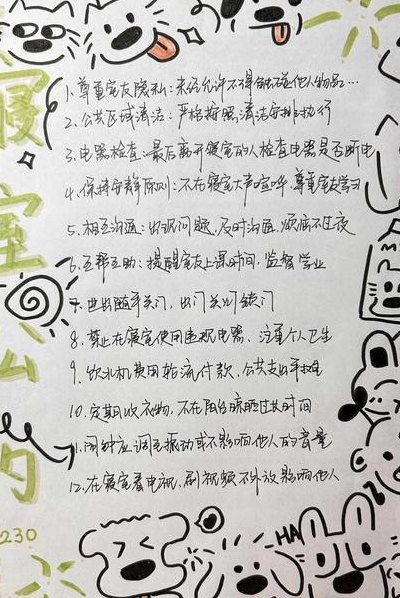 寝室公约
1.尊重室友隐私:未经允许不得触碰他人物品...
2.公共区域清洁:严格按照清洁安排执行
3.电器检查:最后离开寝室的人检查电器是否断电
4.保持安静原则:不在寝室大声喧哗,尊重室友学习
5.相互沟通:出现问题,及时沟通,烦恼不过夜
6.互帮互助:提醒室友上课时间,监督学业
7.进出随手关门,出门关灯锁门
8.禁止在寝室使用违规电器、注重个人卫生
9.饮水机费用轮流付款、公共支出平摊
10.定期收衣物,不在阳台晾晒过长时间
11.闹钟应调至振动或不影响他人的音量
12.在寝室看电视、刷视频不外放影响他人
230
HA